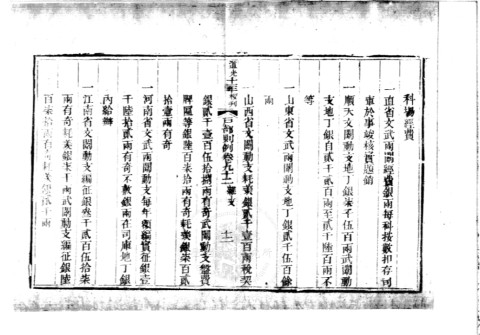 科場經費
一直省文武兩闈經費銀兩每科按數扣存司
庫於事竣核實題銷
一順天文闈動支地丁銀柒千伍百兩武闈動
支地丁銀自貳千貳百兩至貳千陸百兩不
等
一山東省文武闈動支地丁銀貳千伍百餘
兩
一山西省文闈動支耗羡銀貳千壹百兩稅契
戶部則例卷九十二 雜支 十二
銀貳千壹百伍拾捌兩有奇武闈動支盤費
牌匾等銀陸百柒拾兩有奇耗羡銀柒百貳
拾壹兩有奇
一河南省文武闈動支每年額編實征銀壹
千陸拾貳兩有奇不敷銀兩在司庫地丁銀
內給辦
一江南省文闈動支編征銀叁千貳百伍拾柒
兩有奇耗羡銀 兩武闈動支編征銀陸
百柒拾兩有